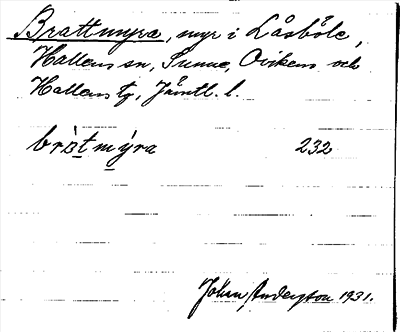 Brattmyra, myr i Låsböle,
Hallens sn, Sunne, Ovikens och
Hallens tg, Jämtl. l.
brat mýra 232
Johan Anderzson 1931.